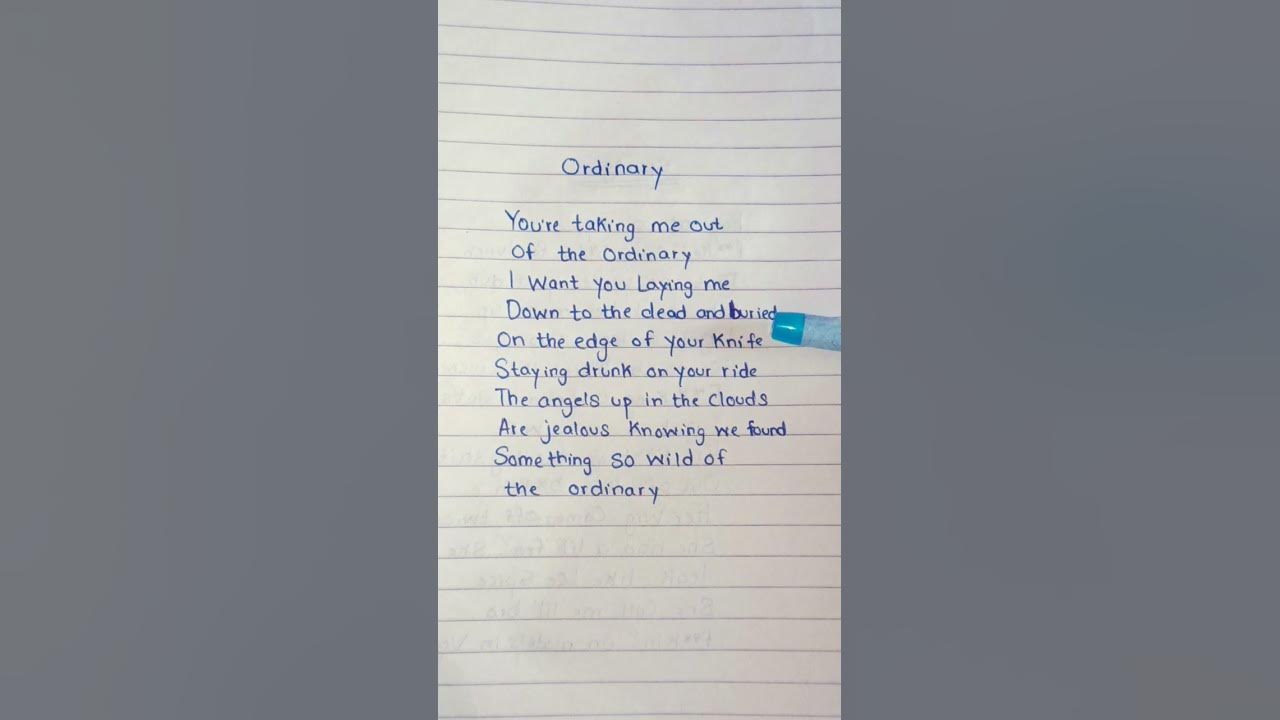 Ordinary
You're taking me out
Of the Ordinary
I Want you Laying me
Down to the dead and buried
On the edge of your Knife
Staying drunk on your ride
The angels up in the Clouds
Are jealous Knowing we found
Something So Wild of
the ordinary